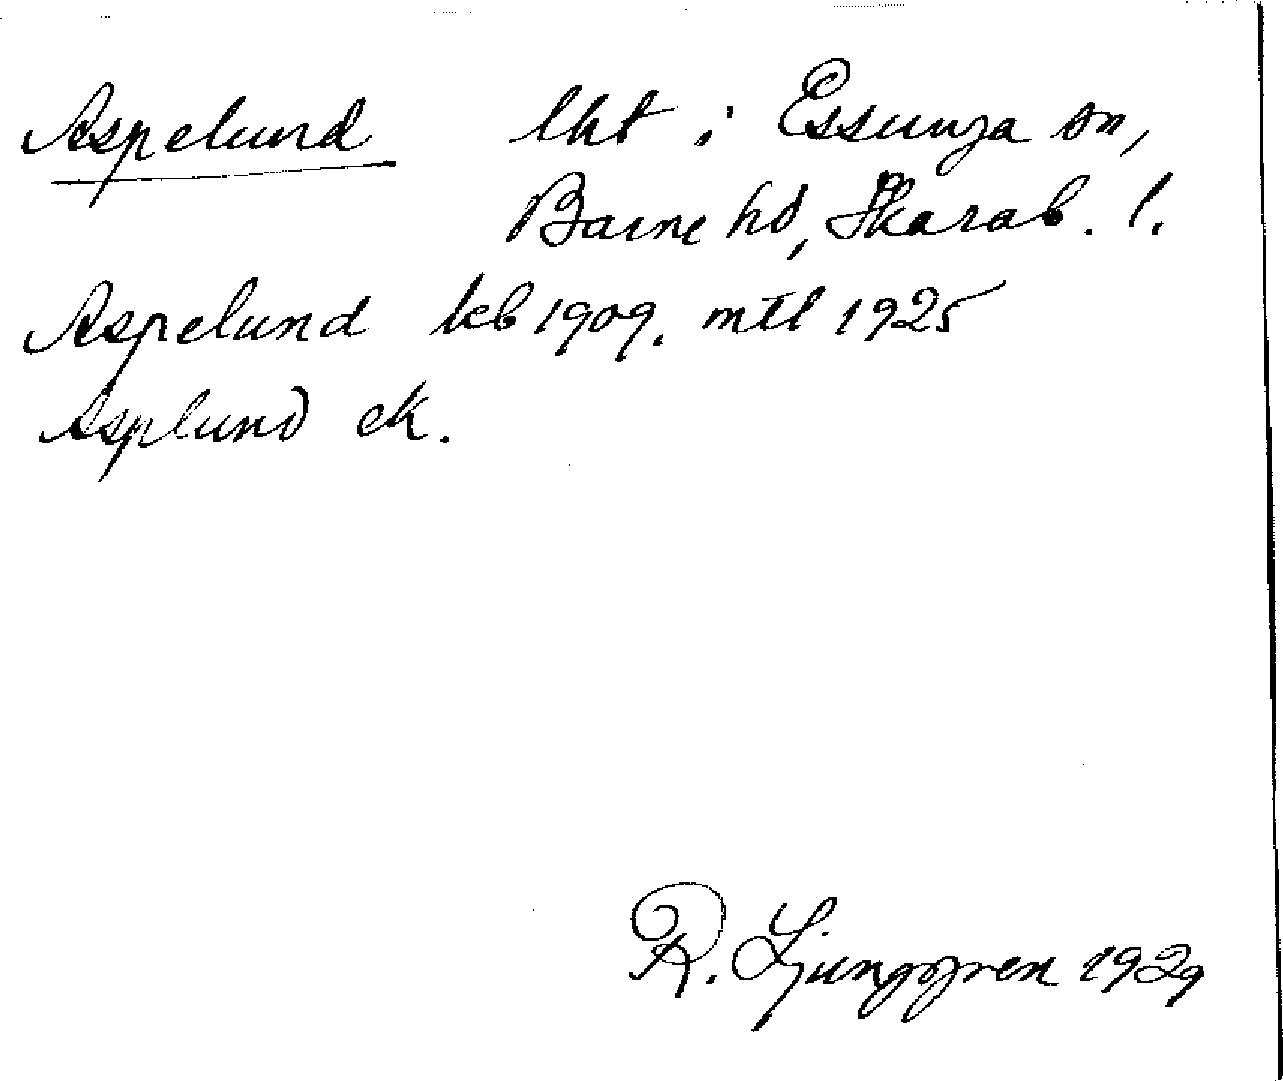 Aspelund lht i Essunga sn,
Barne hd, Skarab. l.
Aspelund kb 1909. mtl 1925
Asplund ek.
R. Ljunggren 1929